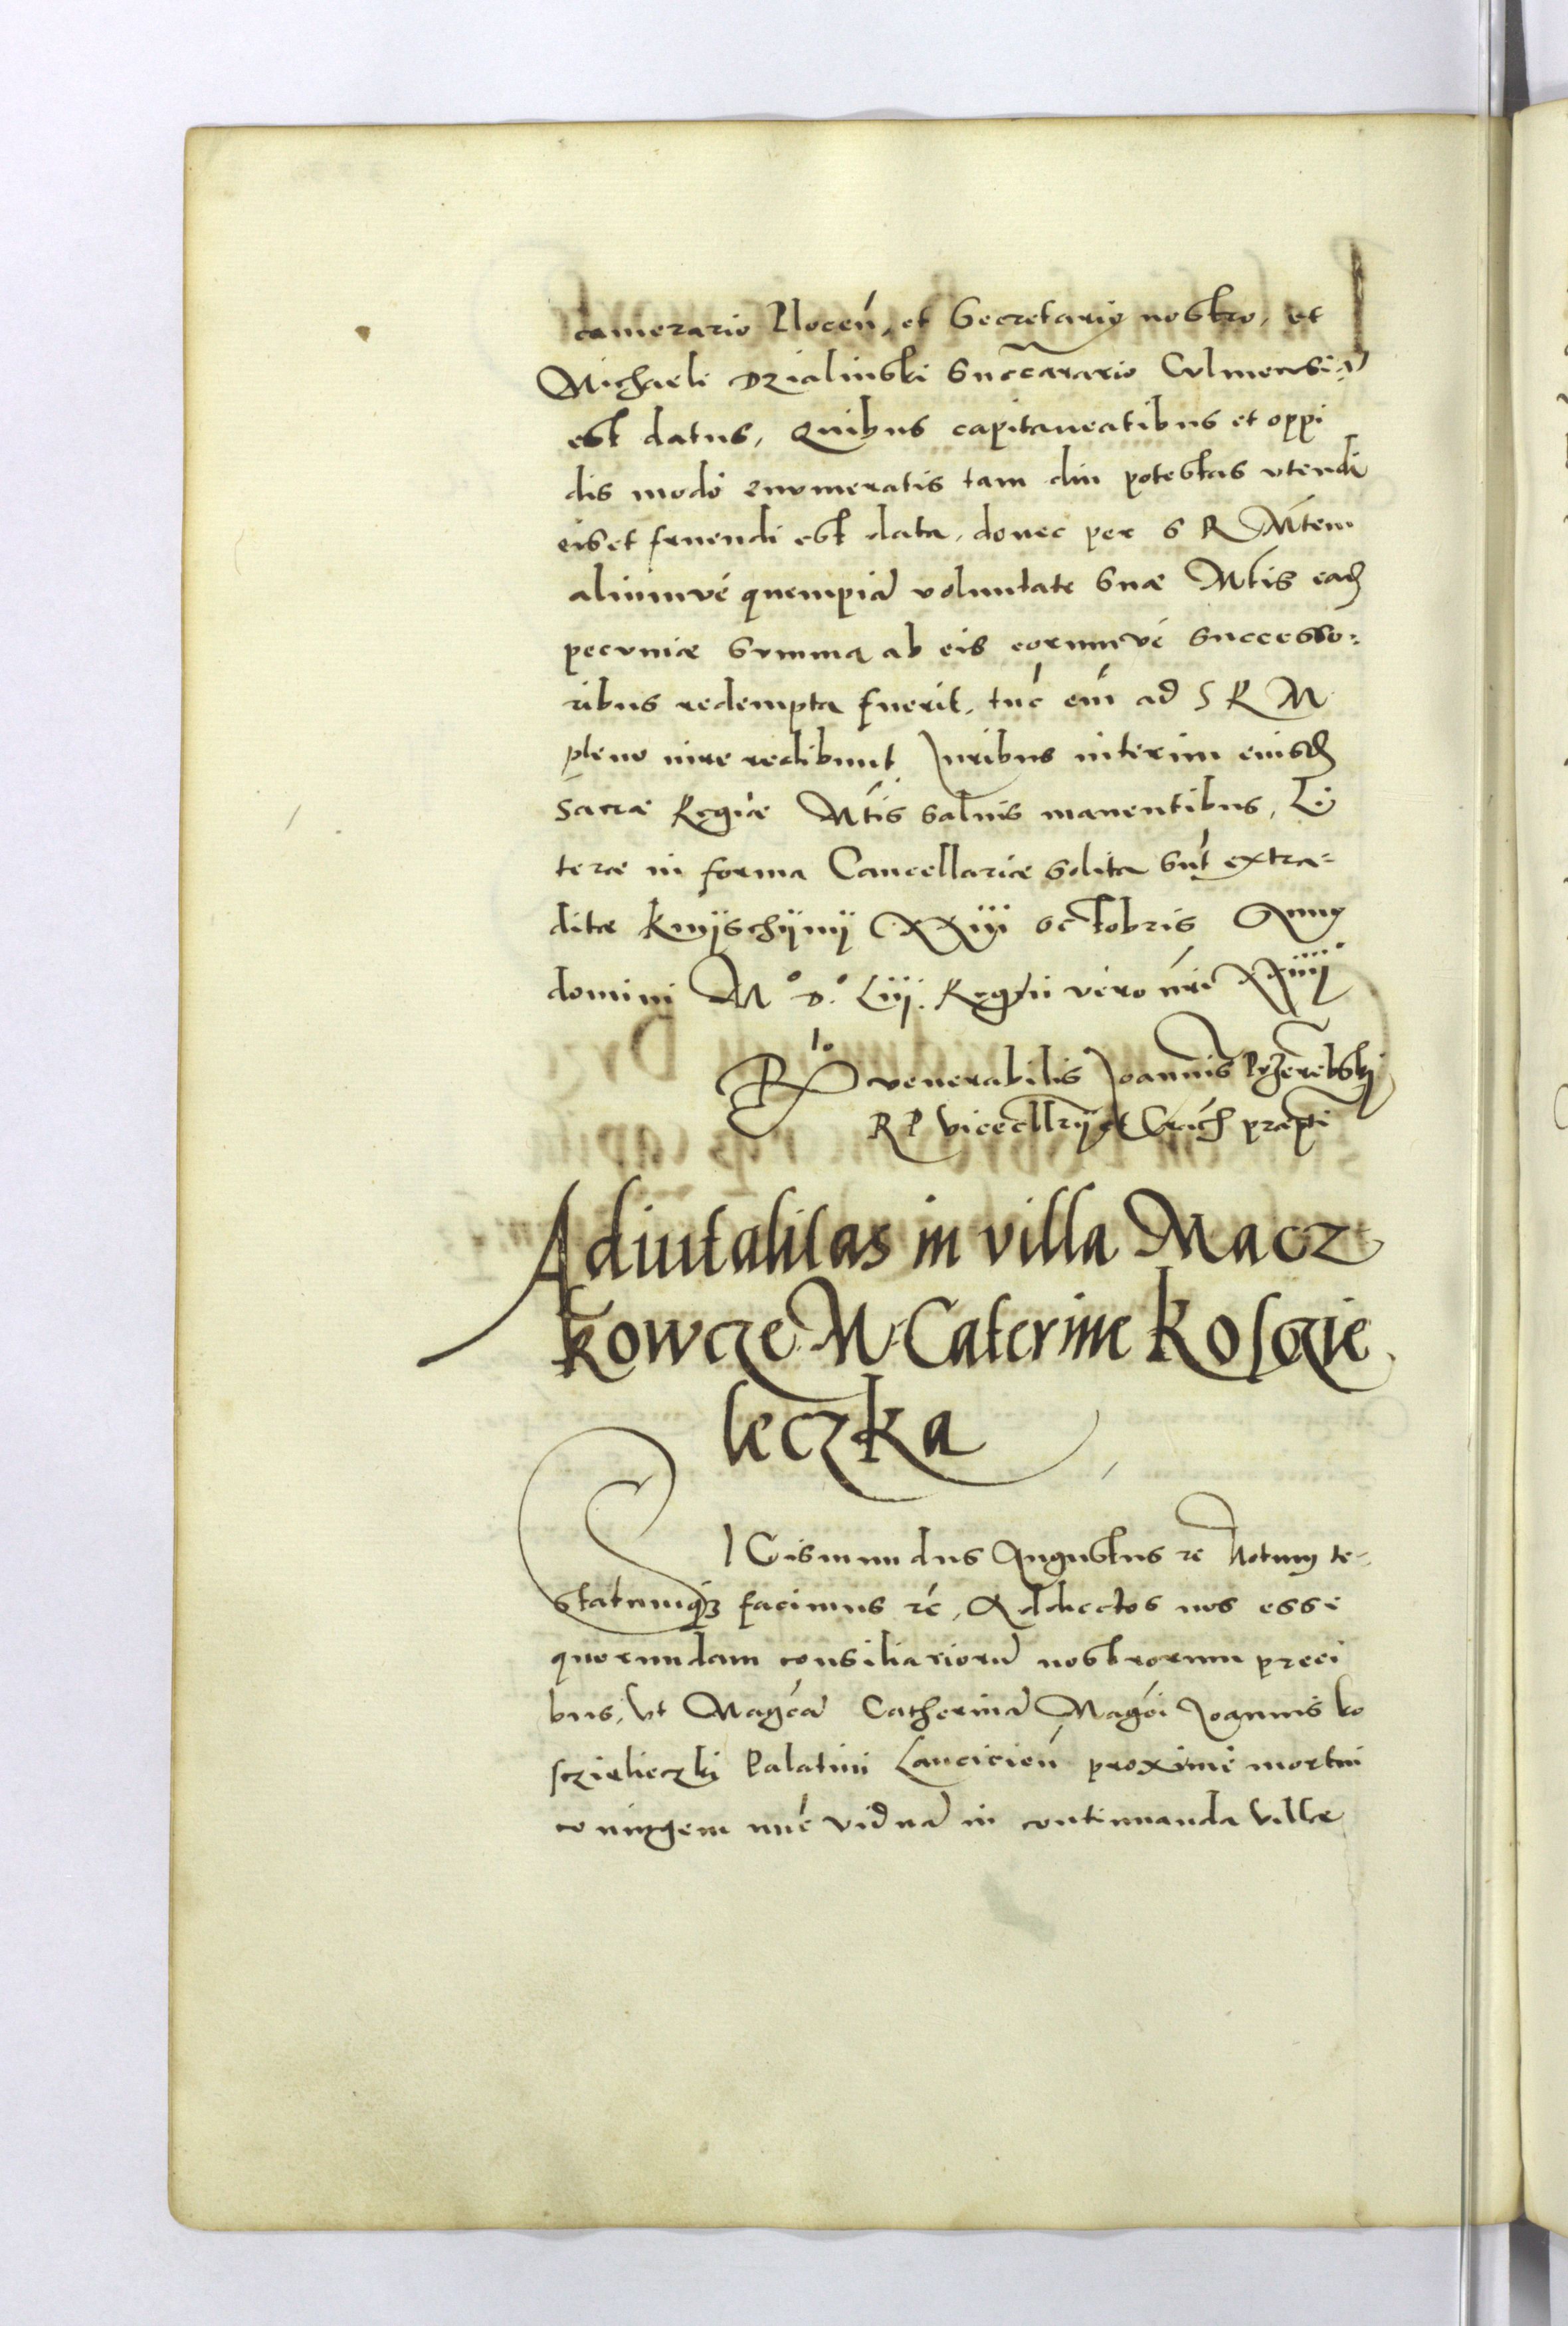 camerario Plocen, et Secretario nostro, et
Michaeli Dzialinski Succarario Culmensi
est datus, Quibus capitaneatibus et oppi
dis modo enumeratis tam diu potestas vtendi
eis et fruendi est data, donec per S R Mtem
aliumve quempia voluntate Suæ Mtis eadem
pecuniæ Summa ab eis eorumve successo:
ribus redempta fuerit, tuc em ad S R M
pleno iure redibunt Juribus interim eiusd
Sacræ Regiæ Mtis saluis manentibus, Li
teræ in forma Cancellariæ solita sut extra=
ditæ Knijschijnij XXiij octobris Anno
domini M° D° Liij. Regni vero nri XXiiij
Ro venerabilis Joannis Przerebskj
R P Vicecllrij et Crach præpti
Aduitalitas in villa Macz
kowcze M Caterine Kosczie
leczka
SIGismundus Augustus re Notum te=
statumq3 facimus re, Adductos nos esse
quorundam consiliarioru nostrorum preci
bus, Vt Magcam Catherina Magci Joannis Ko
sczielieczkj Palatini Lancicien proxime mortui
coniugem nuc vidua in continuanda Villæ